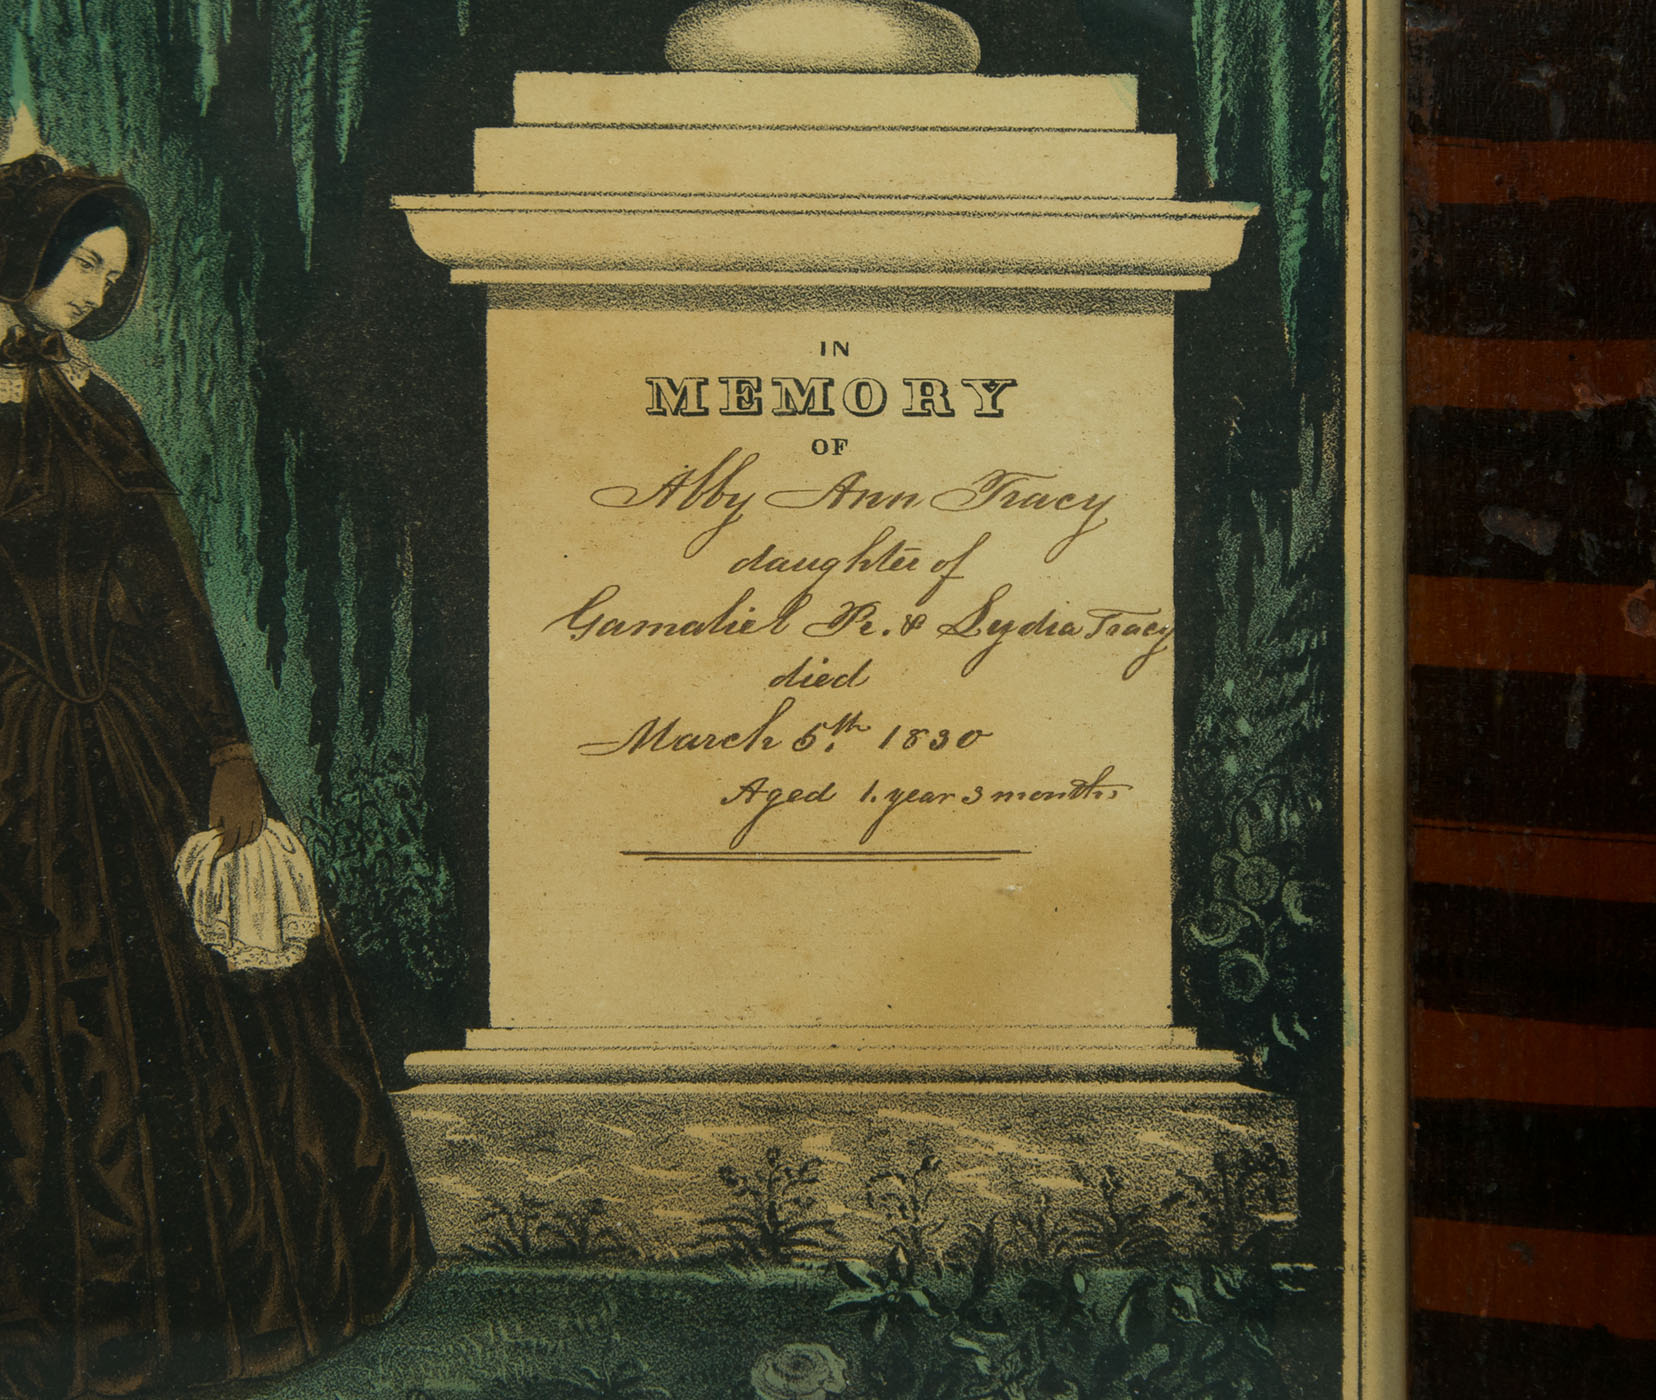 IN
MEMORY
OF
Abby Ann Tracy
daughter of
Gamaliel R. & Lydia Tracy
died
March 5th. 1830
Aged 1. year 3 months